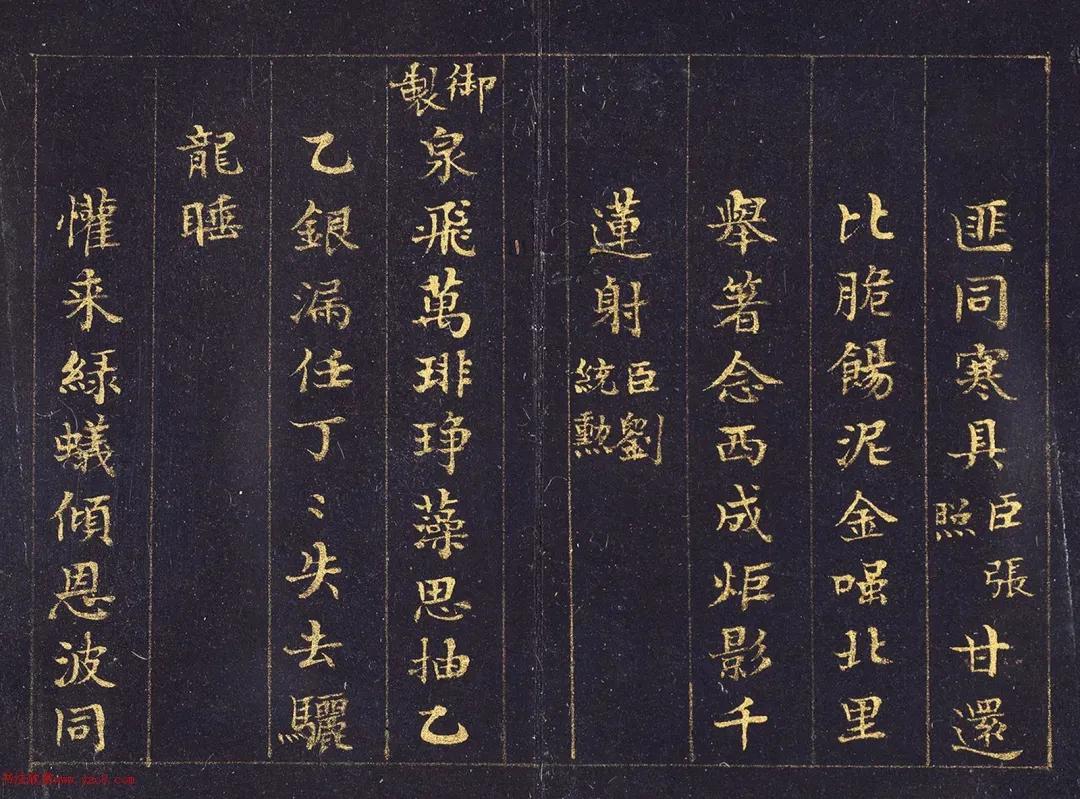 匪同寒具臣張照甘還
比脆餳泥金嗤北里
舉箸念西成炬影千
蓮射臣劉統勳
御製泉飛萬琲琤藻思抽乙
乙銀漏任丁〻失去驪
龍睡
懽来緑蟻傾恩波同
www.yac8.com